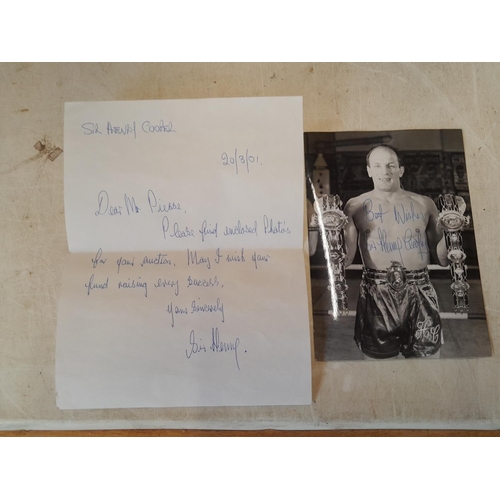 Sir Henry Cooper
20/3/01.
Dear Mr
Please find enclosed Photo's
for your auction. May I wish your
fund raising every success.
Yours Sincerely
Sir Henry.
Best Wishes
Sir Henry Cooper
HC